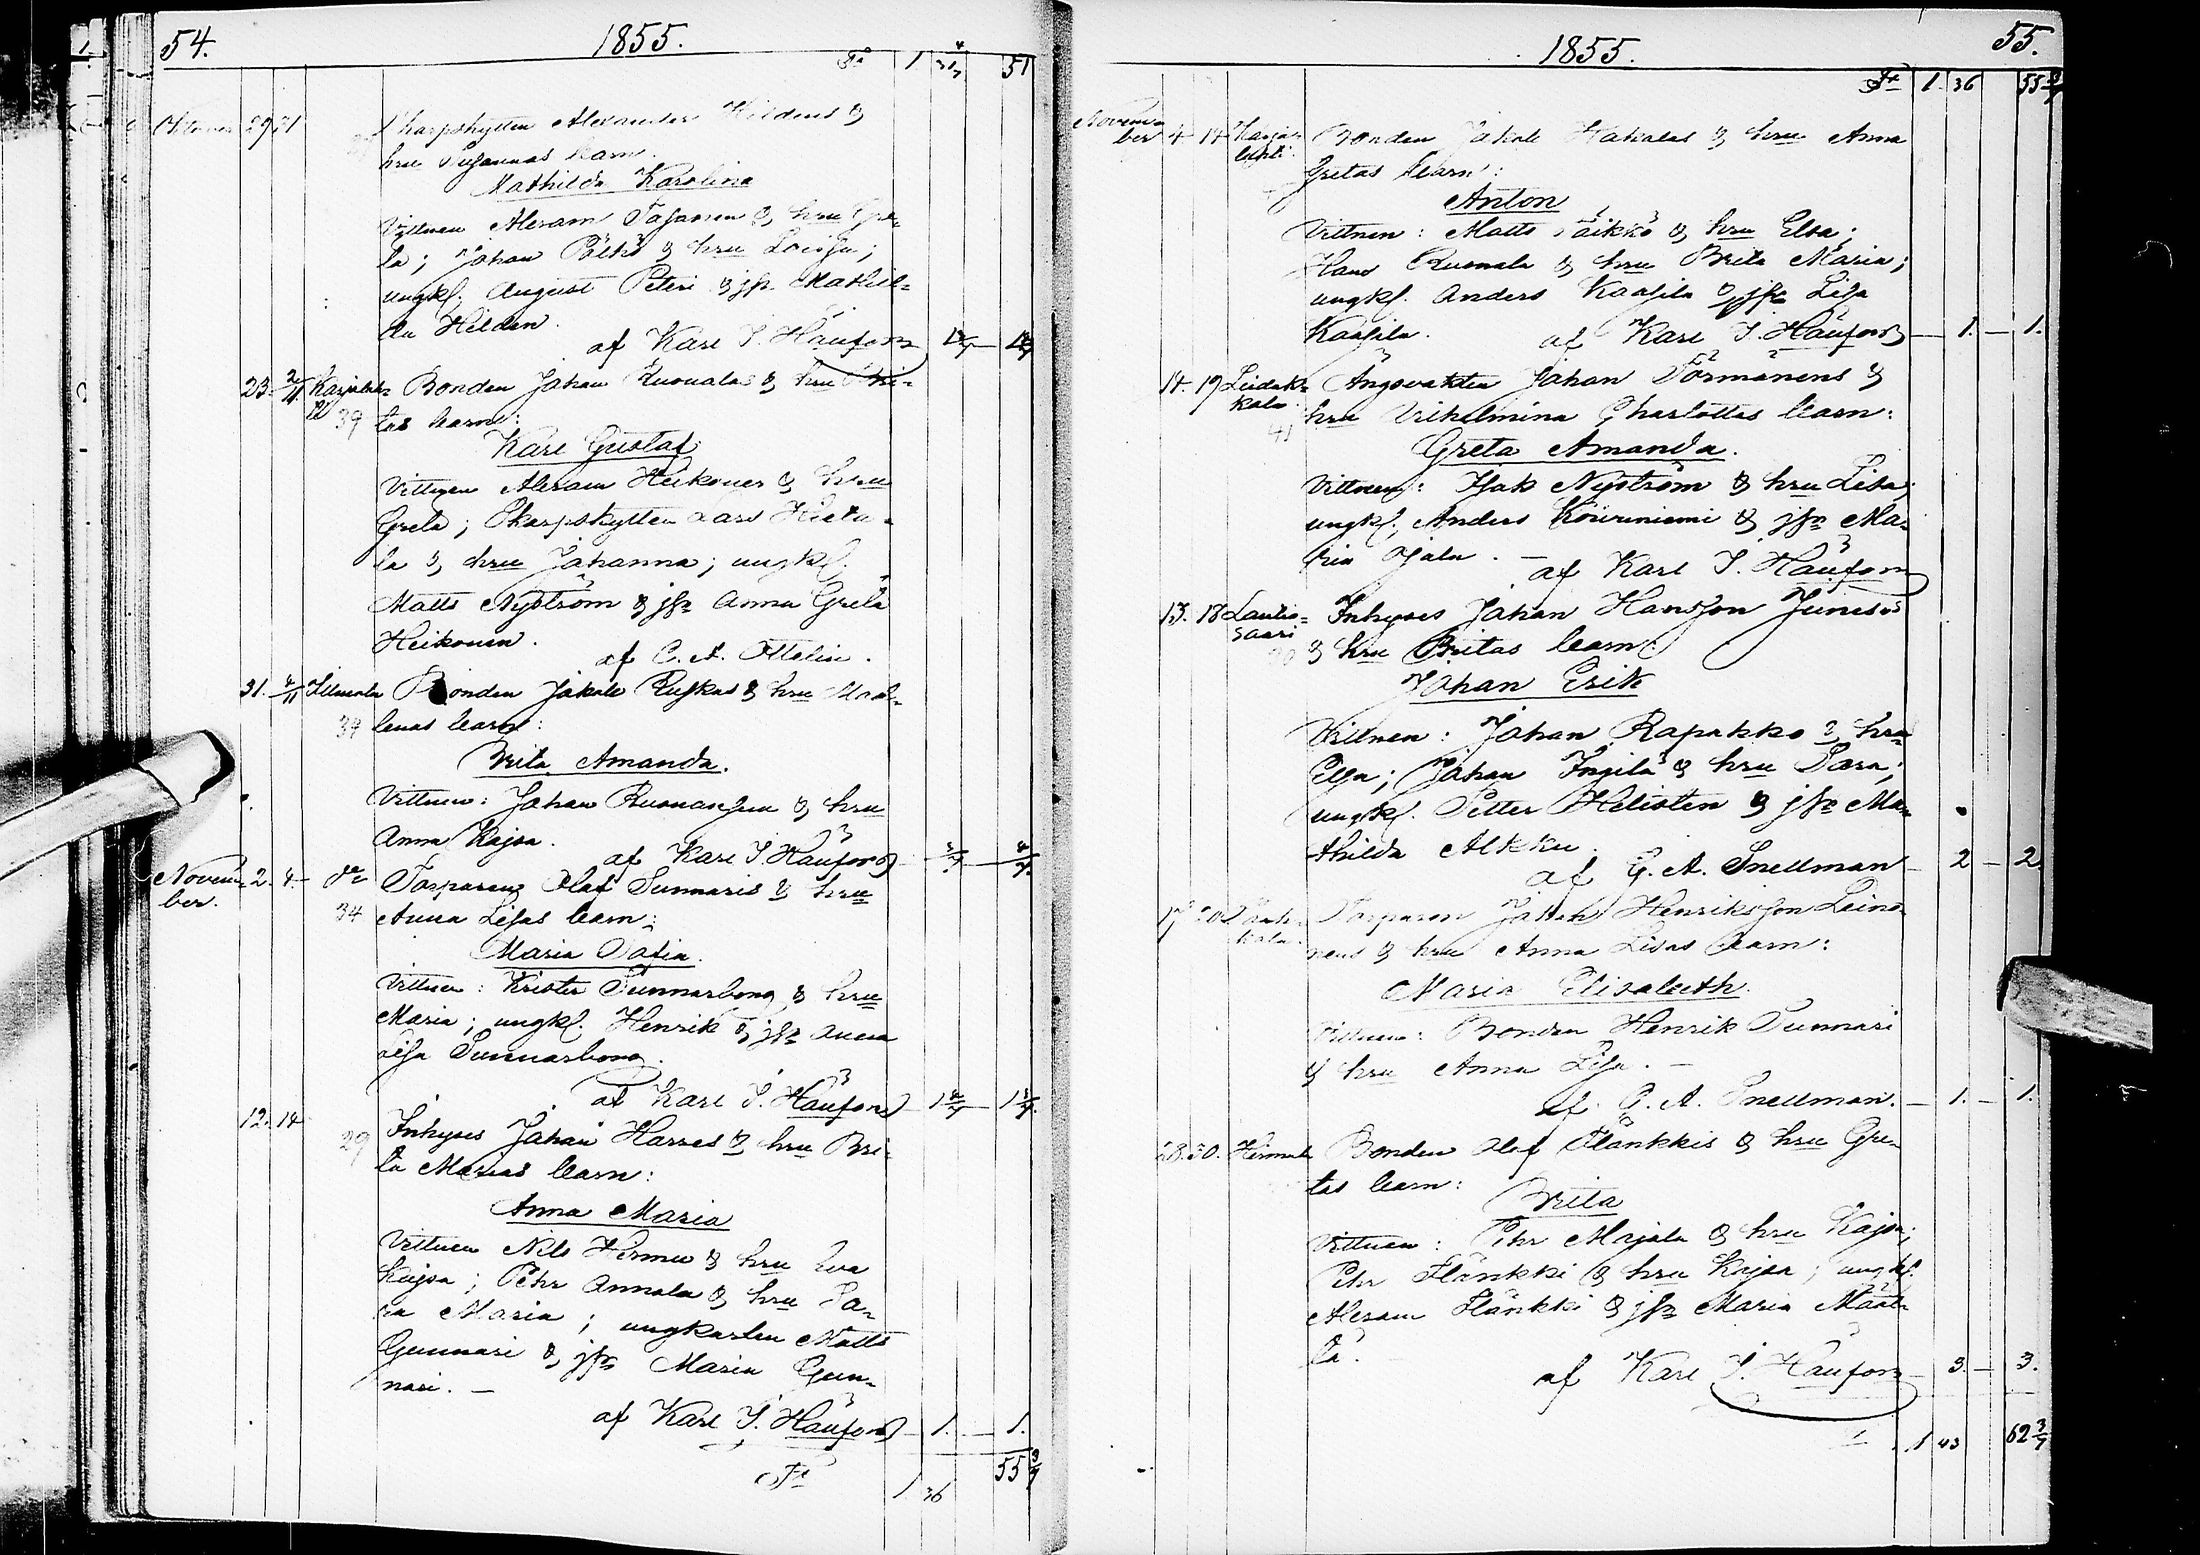 54. 1855.
Tr 1 51
October 29 31 Skarpskytten Alexander Hildens &
hru Susannas barn.
Mathilda Karolina
Vittnen Abram & hru Gre-
ta; Johan & hru Lovisa;
ungkl. August Peteri & jfr. Mathil-
da Hilden.
af Karl J. Haufors
23. Karjalah- Bonden Johan Ruonalas & hru Bri-
39 tas barn:
Karl Gustaf
Vittnen Abram Heikonen & hru
Greta; Skarpskytten Lars
la & hru Johanna; ungkl.
Matts Nyström & jfr Anna Greta
Heikonen.
af C. A. Ottelin.
31. 4/11 Bonden Jakob Ruskas & hru Mad-
34 lenas barn:
Brita Amanda.
Vittnen: Johan & hru
Anna Kajsa.
af Karl J. Haufors
Novem- 2. 4. do Torparen Olof Sunnaris & hru
ber. 34 Anna Lisas barn:
Maria Sofia.
Vittnen: Krister Sunnarborg & hru
Maria; ungkl. Henrik & jfr Anna
Lisa Sunnarborg.
af Karl J. Haufors
12. 14 Inhyses Johan Harrees & hru Bri-
29 ta Marias barn:
Anna Maria
Vittnen Nils Hermu & hru Eva
Kajsa; Pehr Annala & hru Sa-
ra Maria; ungkarlen Matts
Gunnari & jfr Maria Gun-
nari. —
af Karl J. Haufors 1. — 1.
Tr 1 36 55 3/7
1855. 55.
Tr 1. 36 55 3/7
Novem-
ber 4 14 Karja- Bonden Jakob Hakalas & hru Anna
lahti. Gretas barn:
Anton
Vittnen: Matts Päikkö & hru Elsa;
Hans Ruonala & hru Brita Maria;
ungkl. Anders Kaasila & jfr Lisa
Kaasila. af Karl J. Haufors — 1. — 1.
14. 19 Liedak- Ängsvakten Johan Törmänens &
kala. hru Vilhelmina Charlottas barn:
41
Greta Amanda.
Vittnen: Isak Nyström & hru Lisa;
ungkl. Anders Kouriniemi & jfr Ma-
ria Ojala. — af Karl J. Haufors
13. 18 Lautio- Inhyses Johan Hansson Junes's
saari & hru Britas barn:
Johan Erik
Vittnen: Johan Rapakko & hru
Elsa; Johan Ingilä & hru Sara;
ungkl. Petter Helisten & jfr Ma-
thilda Alkku.
af G. A. Snellman — 2 — 2.
17. 20. Torparen Johan Henriksson Leino-
nens & hru Anna Lisas barn:
Maria Elisabeth.
Vittnen: Bonden Henrik Sunnari
& hru Anna Lisa. —
af G. A. Snellman. — 1. — 1.
28. 30. Hermula Bonden Olof Flänkkis & hru Gre-
tas barn:
Brita
Vittnen: Pehr Majala & hru Kajsa;
Pehr Flänkki & hru Kajsa; ungkl.
Abram Flänkki & jfr Maria Määt-
tä.
af Karl J. Haufors — 3. — 3.
1 43 62 3/7